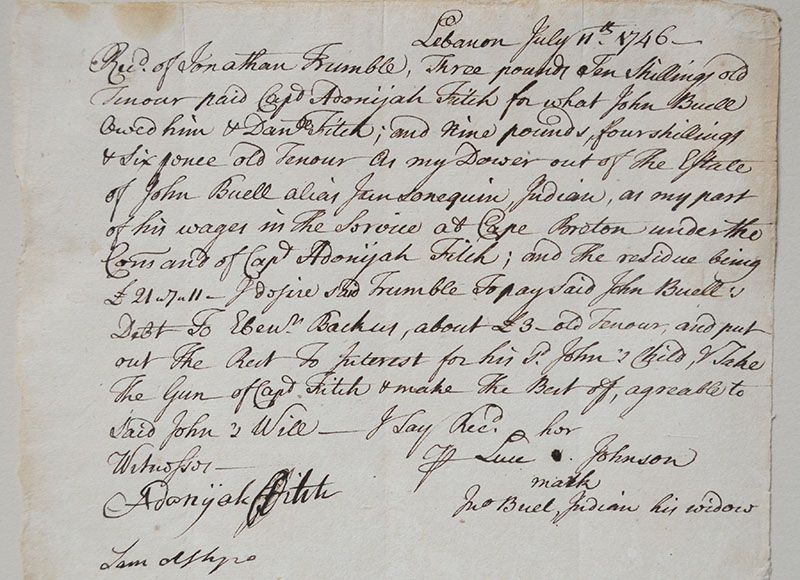 Lebanon July 11th. 1746 —
Recd. of Jonathan Trumble, Three pounds Ten Shillings old
Tenour paid Capt Adonijah Fitch for what John Buell
Owed him & Danll Fitch; and Nine pounds, four shillings
& Six pence old Tenour As my Dower out of The Estate
of John Buell alias Indian, as my part
of his wages in The Service at Cape Breton under the
Comand of Capt Adonijah Fitch; and The residue being
£ 21..7..11 — I desire said Trumble To pay said John Buell's
Debt To Ebenr. Backus, about £3 — old Tenour, and put
out The Rest To Interest for his Sd John's Child, & Take
The Gun of Capt Fitch & make The Best of, agreable to
said John's Will — I Say Recd.
her
Witnesses —
Luce . Johnson
mark
Adonijah Fitch
Jno Buel, Indian his widow
Sam